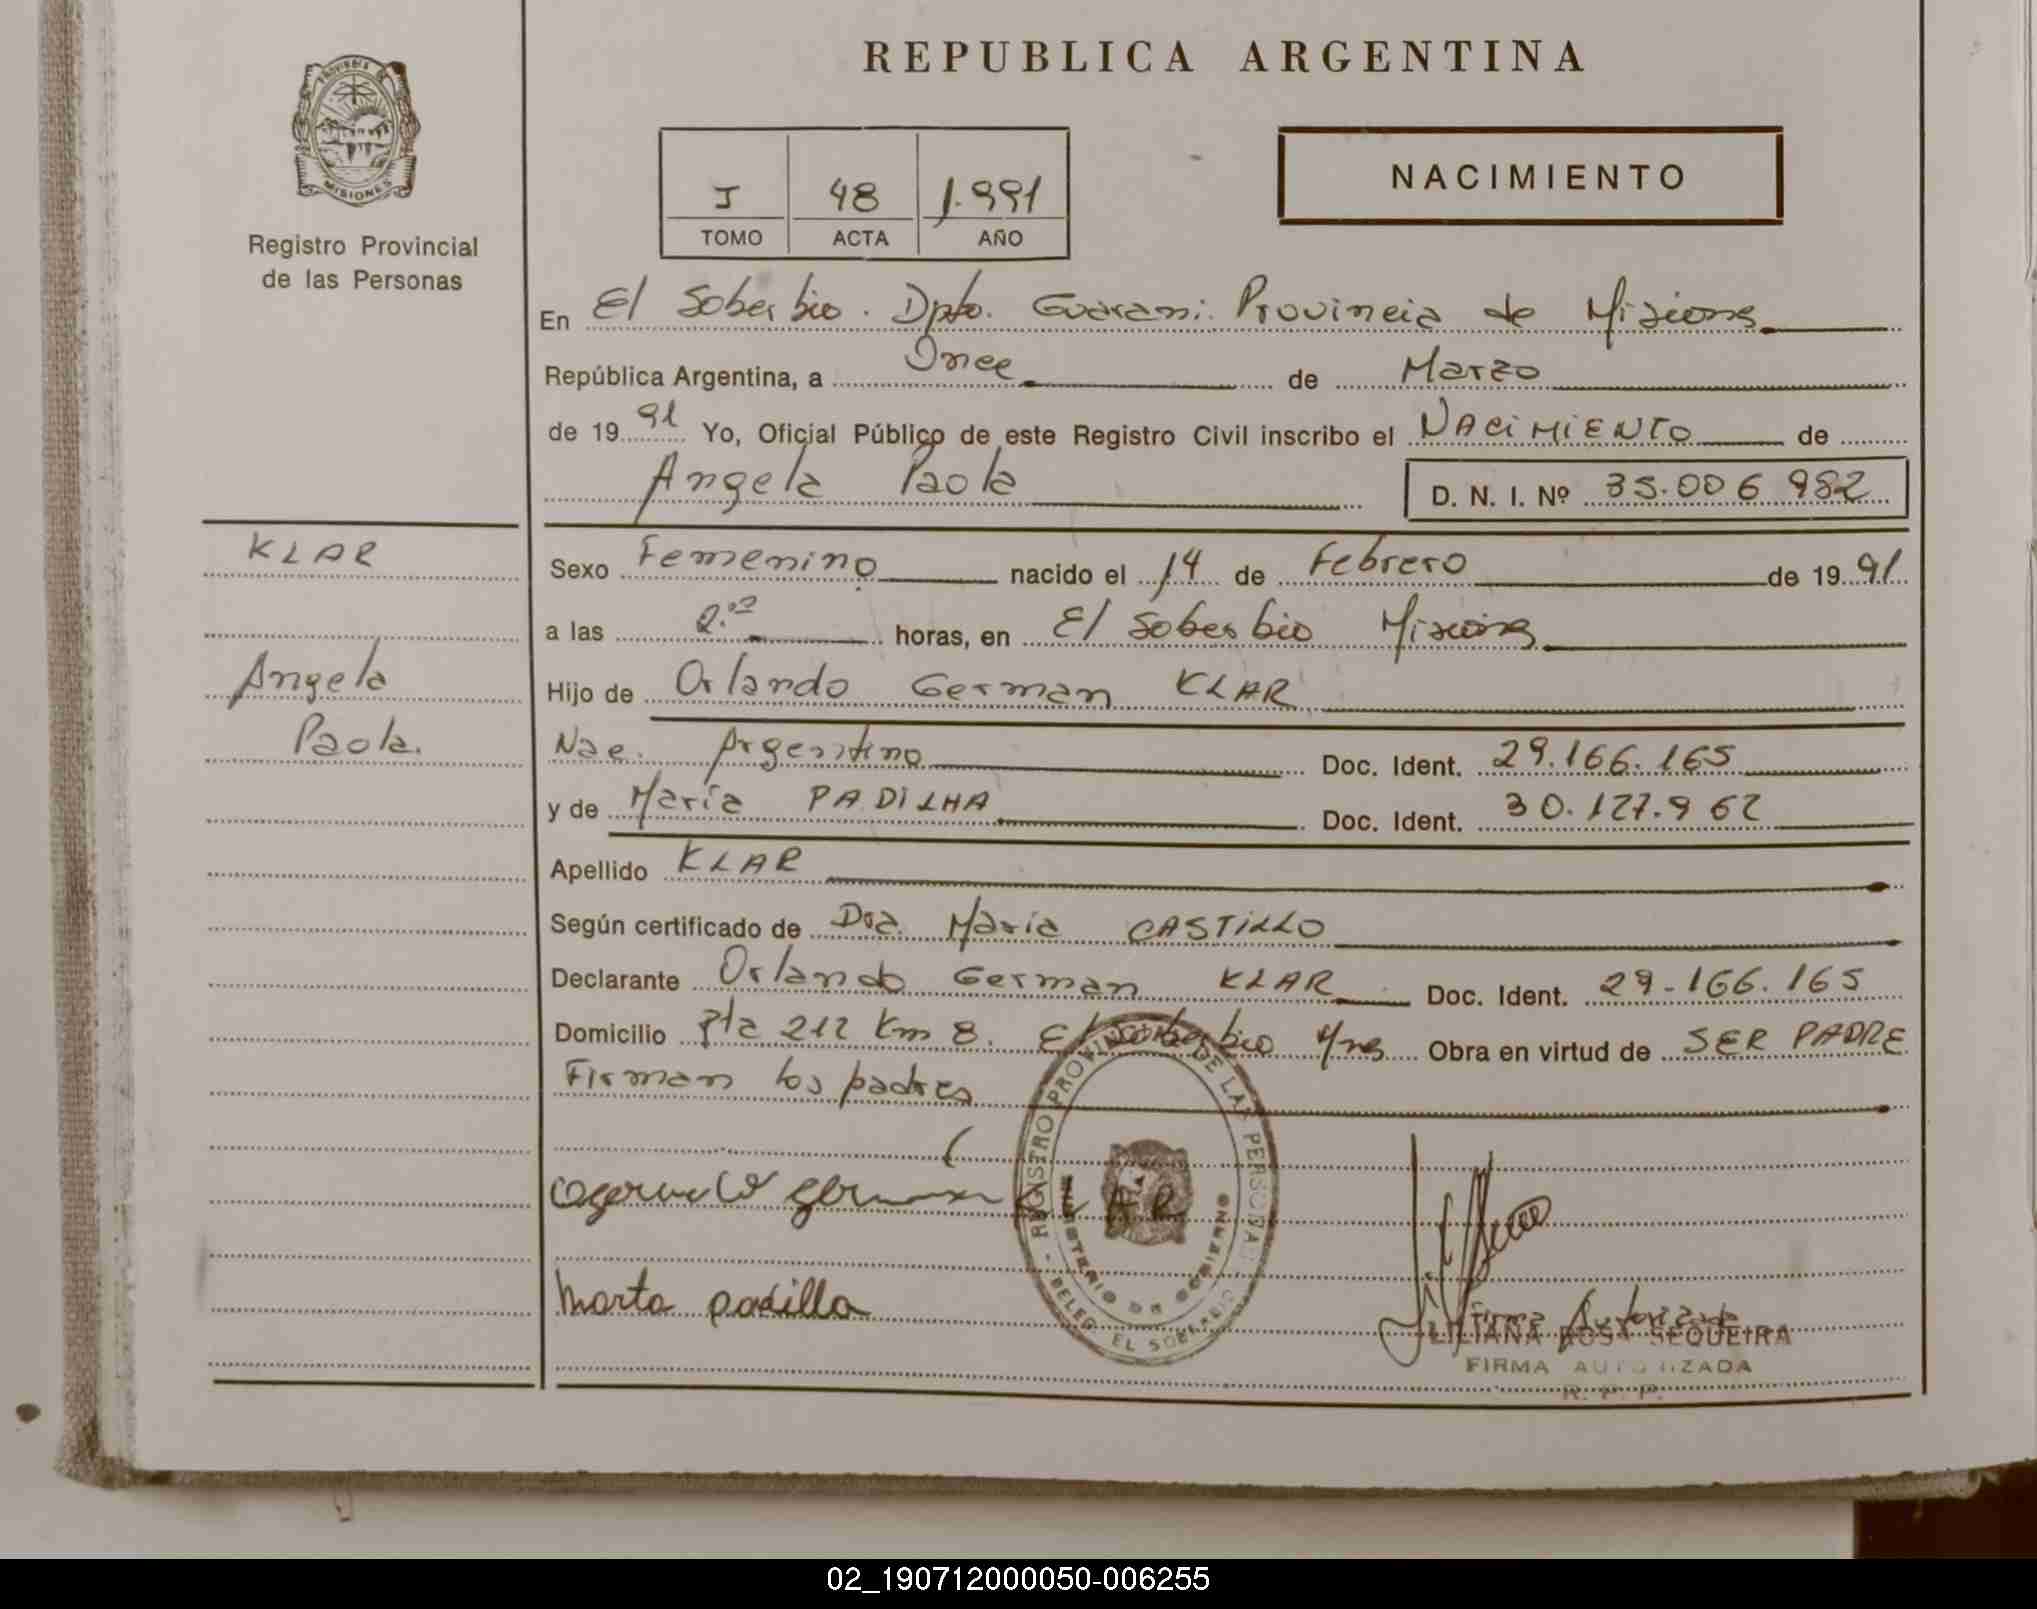 REPUBLICA ARGENTINA
PROVINCIA DE
MISIONES
Registro Provincial
de las Personas
I 48 1.991
TOMO ACTA AÑO
NACIMIENTO
En El Soberbio. Dpto. Guarani. Provincia de Misiones
República Argentina, a Once de Marzo
de 19 91 Yo, Oficial Público de este Registro Civil inscribo el NACIMIENTO de
Angela Paola D. N. I. Nº 35.006 982
KLAR
Angela
Paola.
Sexo Femenino nacido el 14 de Febrero de 19 91
a las horas, en El Soberbio Misiones
Hijo de Orlando German KLAR
Nac. Argentino Doc. Ident. 29.166.165
y de Maria PADILHA Doc. Ident. 30.127.962
Apellido KLAR
Según certificado de Dra. Maria CASTILLO
Declarante Orlando German KLAR Doc. Ident. 29-166.165
Domicilio Rta 212 Km 8. El Soberbio Mnes Obra en virtud de SER PADRE
Firman los padres
REGISTRO PROVINCIAL DE LAS PERSONAS
MINISTERIO DE GOBIERNO
DELEG. EL SOBERBIO
German KLAR
Marta padilla
Firma Autorizada
LILIANA ROSA SEQUEIRA
FIRMA AUTORIZADA
R. P. P.
02_190712000050-006255